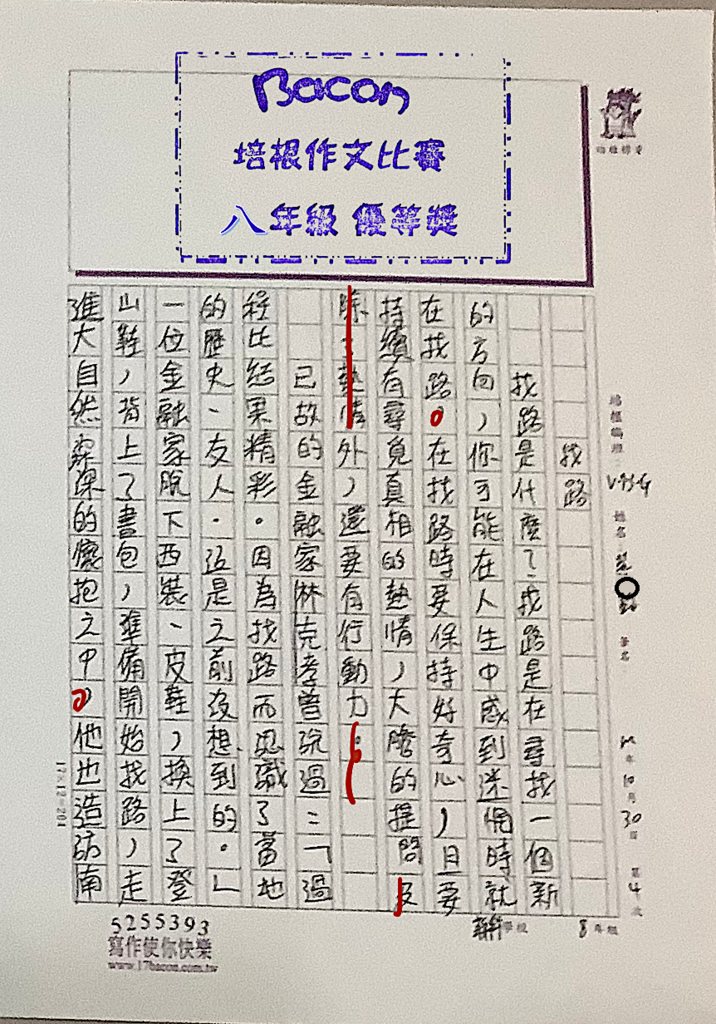 Bacon
培根作文比賽
八年級 優等獎
找路
找路是什麼?找路是在尋找一個新
的方向,你可能在人生中感到迷惘時就
在找路。在找路時要保持好奇心,且要
持續有尋覓真相的熱情,大膽的提問及
除了熱情外,還要有行動力。
已故的金融家林克孝曾說過:「過
程比結果精彩。因為找路而認識了當地
的歷史、友人.這是之前沒想到的。」
一位金融家脫下西裝、皮鞋,換上了登
山鞋,背上了書包,準備開始找路,走
進大自然深深的懷抱之中。他也造訪南
V954
姓名
筆名
年10月30日
第4次
8年級
17×12=204
5255393
寫作使你快樂
www.17bacon.com.tw